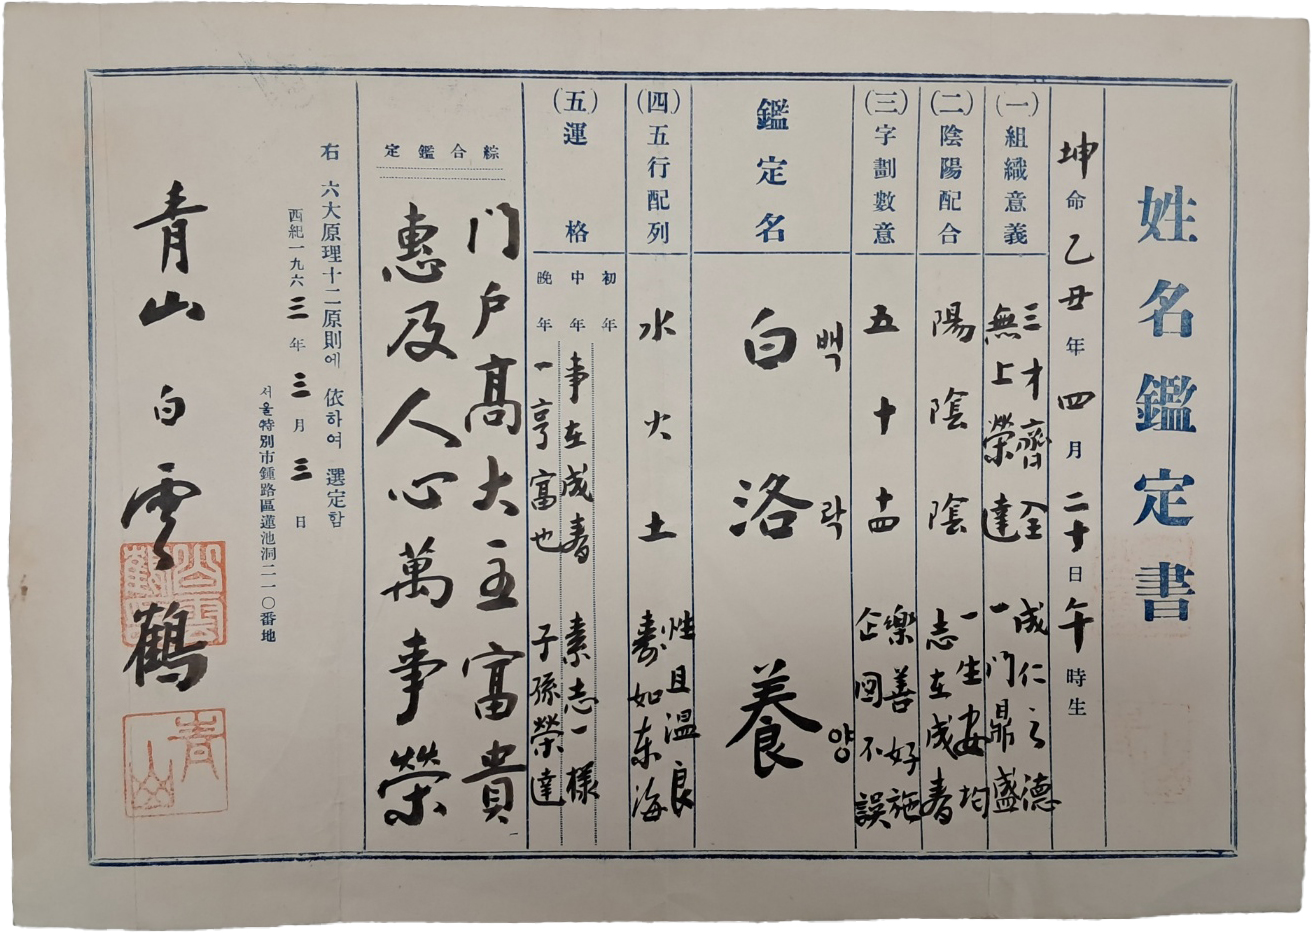 姓名鑑定書
坤命 乙丑年 四月 二十日 午時生
(一)組織意義
三才齊全 成仁之德
無上榮達 一門鼎盛
(二)陰陽配合
陽陰陰
一生安均
志在成春
(三)字劃數意
五十十四
樂善好施
企図不誤
鑑定名
백락양
白洛養
(四)五行配列
水火土
性且溫良
壽如东海
(五)運格
初年
中年 事在成春 素志一樣
晩年 一亨富也 子孫榮達
綜合鑑定
门户髙大主富貴
惠及人心萬事榮
右 六大原理十二原則에 依하여 選定함
西紀一九六三年三月三日
서울特別市鍾路區蓮池洞二一〇番地
青山白雲鶴
青山